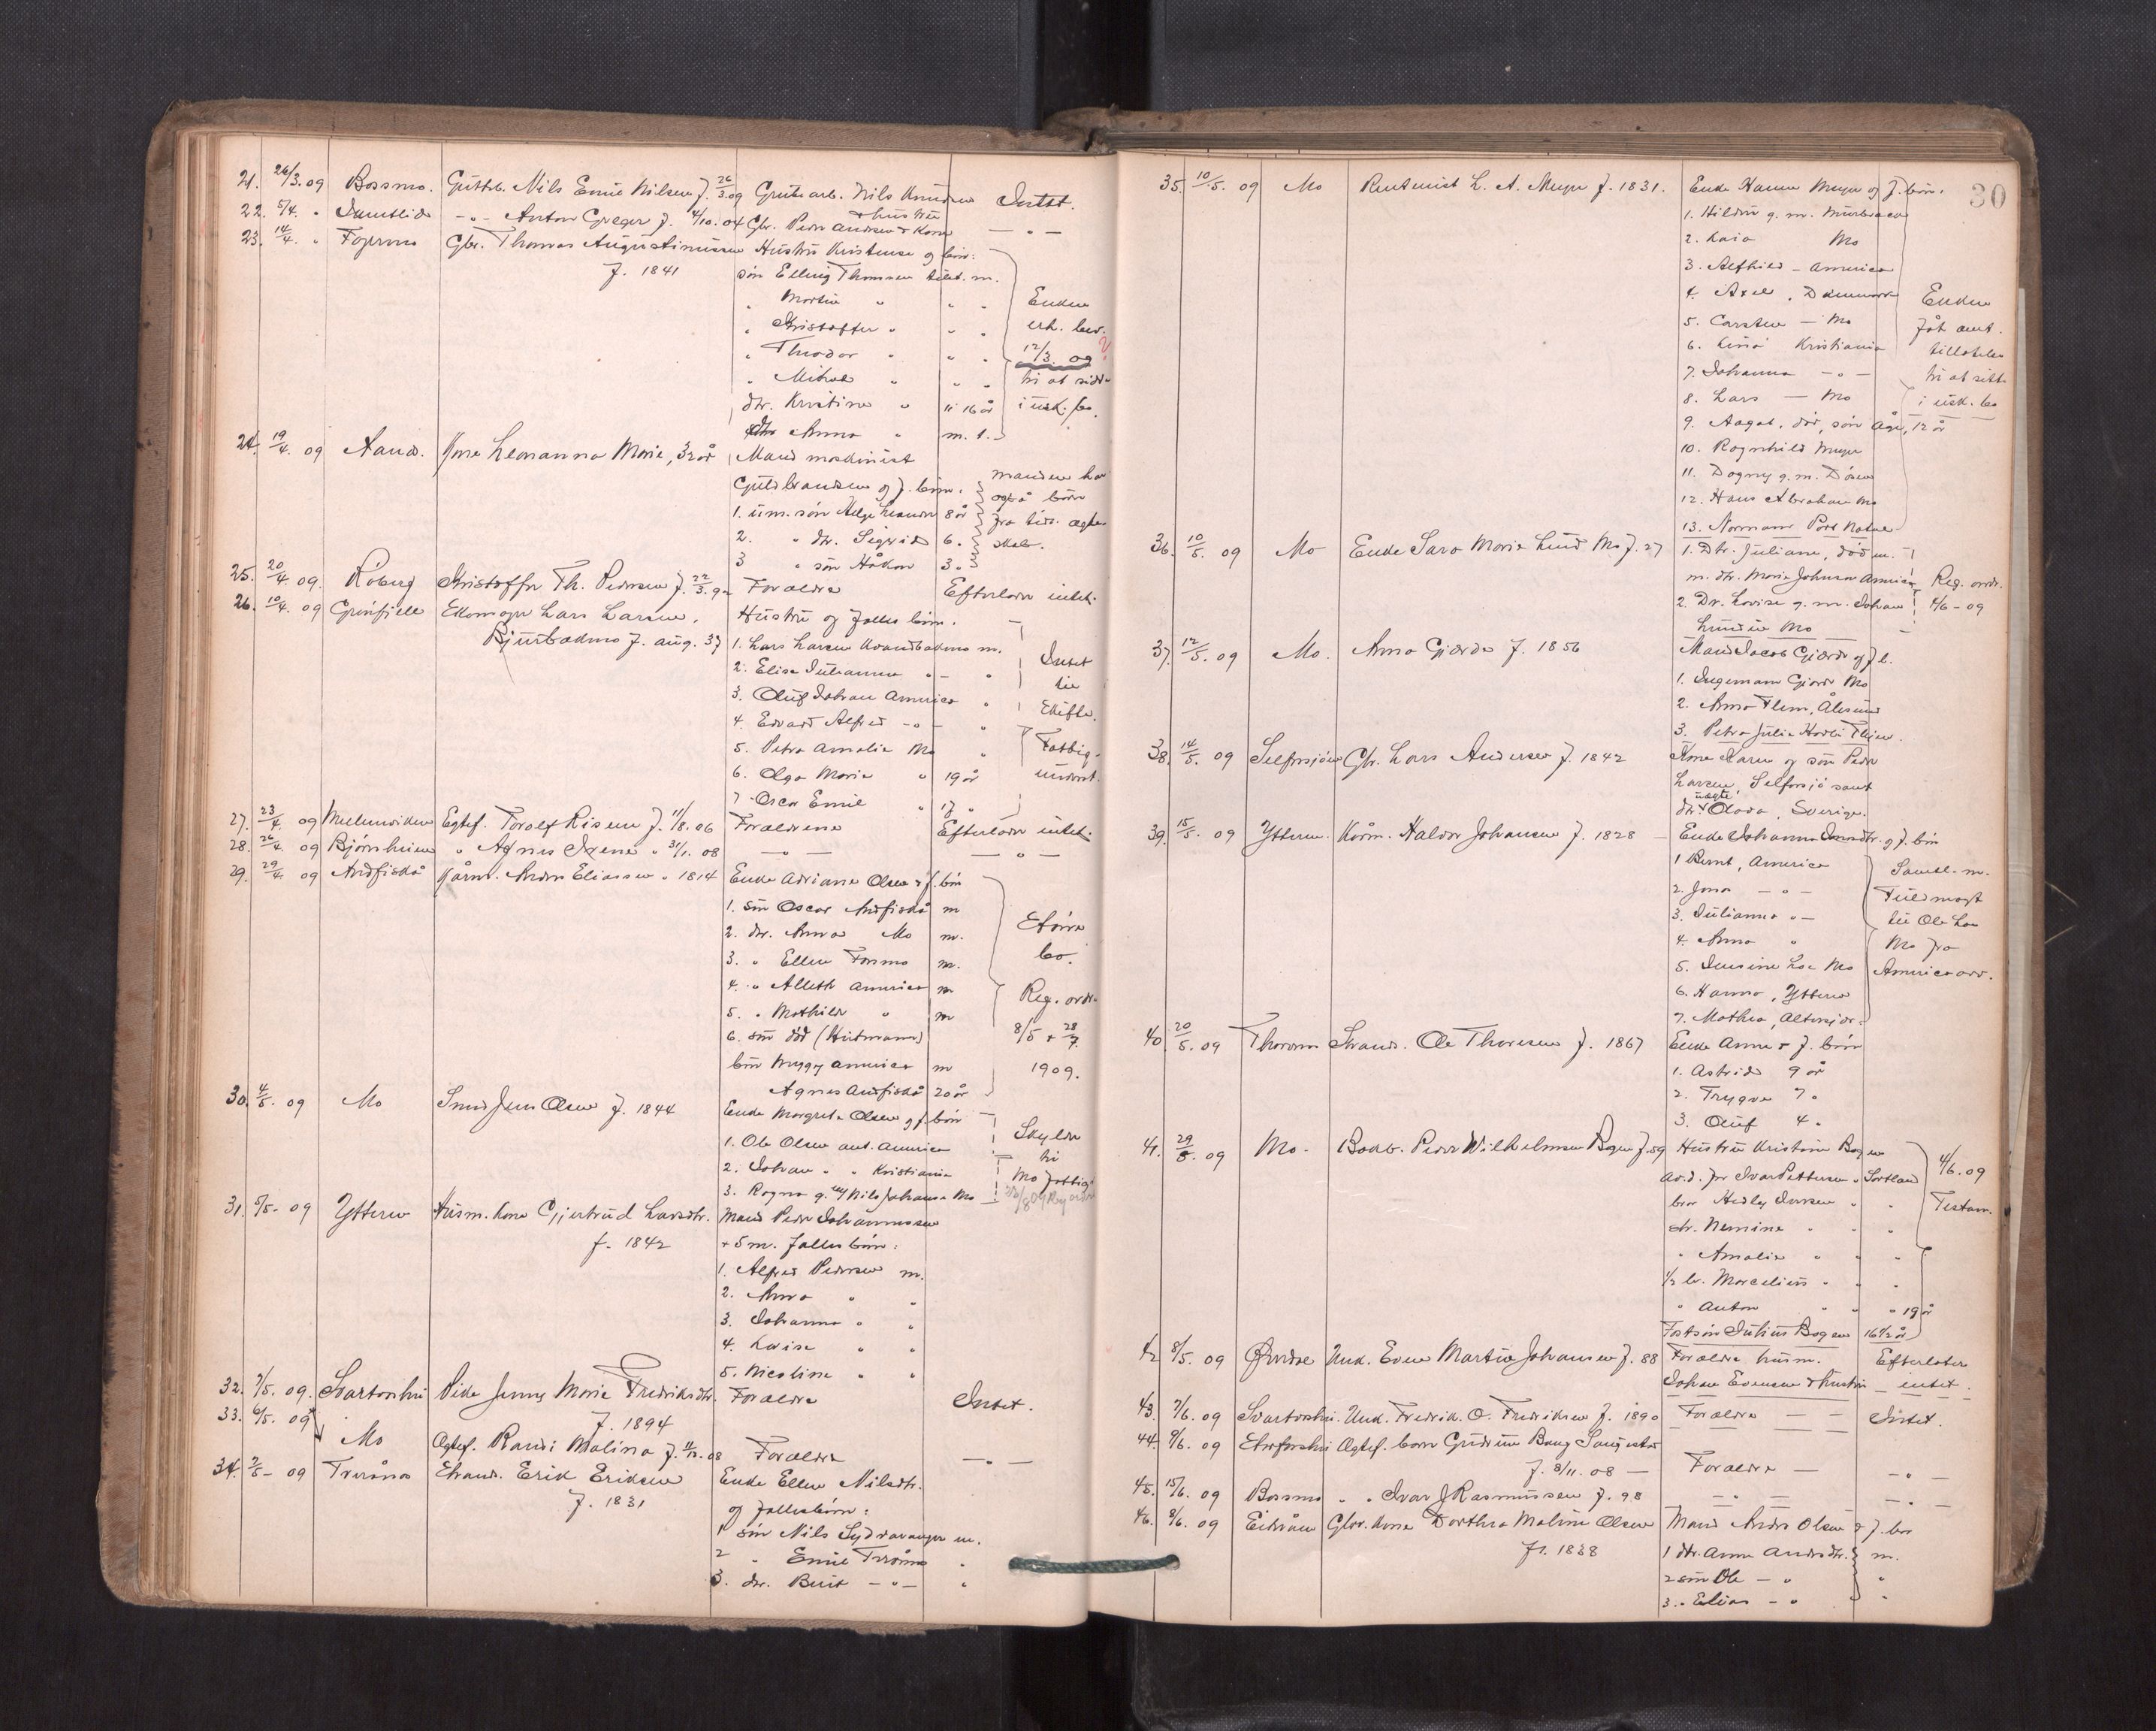 21. 26/3. 09 Bossmo. Guttb. Nils Emil Nilsen f. 26/3.09 Grubearb. Nils Knudsen Intet.
& hustru
22. 5/4. " — " — Anton Greger f. 4/10. 04 Gbr. Peder Andersen & Kone — " —
23. 14/4. " Gbr. Thomas Augustinussen Hustru Kristense og børn:
f. 1841 søn Elling Thomsen m.
" Martin " " "
" Kristoffer " " "
" Theodor " " "
" Mikal " " "
dtr. Kristine " u. 16 år
dtr. Anna " m. 1.
Enken
erh. bev.
12/3. 09
til at sidde
i usk. bo.
24. 19/4. 09 Aanes. Kone Leonanna Marie, 32 år Mand maskinist
Guldbrandsen og f. børn:
1. um. søn Helge Leander 8 år
2. " dtr. Sigrid 6.
3 " søn Håkon 3.
manden har
også børn
fra tidl. ægte-
skab.
25. 20/4. 09. Roberg Kristoffer Th. Pedersen f. 22/3. 9 Forældre Efterlader intet.
26. 10/4. 09 Grønfjell Lars Larsen, Hustru og fælles børn.
f. aug. 37 1. Lars Larsen m.
2. Elise Julianna " — "
3. Oluf Johan America "
4. Edvard Alfred — " — "
5. Petra Amalie Mo "
6. Olga Marie " 19 år
7. Oscar Emil " 17 "
Intet
til
Skifte.
Fattig-
underst.
27. 23/4. 09 Egtef. Torolf Risen f. 11/8. 06 Forældrene Efterlader intet.
28. 26/4. 09 Bjørnheien " Agnes Irene " 31/1. 08 — " — — " —
29. 29/4. 09 Andfiskå Kårm. Anders Eliassen " 1814 Enke Adriane Olsen & f. børn
1. søn Oscar Andfiskå m
2. dtr. Anna Mo m.
3. " Ellen Forsmo m.
4. " Alleth America m
5. " Mathilde " m
6. søn død (Hartmann)
børn America m
Agnes Andfiskå 20 år
Større
bo.
Reg. ordr.
8/5 + 28/7
1909.
30. 4/5. 09 Mo Smed Jens Olsen f. 1844 Enke Margrete Olsen og f. børn
1. Ole Olsen ant. America
2. Johan " " Kristiania
3. Ragna g. m/ Nils Johansen Mo
Skylder
til
Mo fattig
31. 5/5- 09 Ytteren Husm. kone Gjertrud Larsdtr. Mand Peder Johannessen
f. 1842 + 5 m. fælles børn:
1. Alfred Pedersen m.
2. Anna " "
3. Johanna " "
4. Lovise " "
5. Nicoline " "
32. 7/5. 09. Svartishei Pike Jenny Marie Fredriksdtr. Forældre Intet.
f. 1894
33. 6/5. 09 Mo Ogtef. Randi Malina f. 11/11. 08 Forældre — " —
34. 7/5- 09 Tverånes Strand. Erik Eriksen Enke Ellen Nilsdtr.
f. 1831 og fællesbørn:
1 søn Nils Sydvaranger m.
2 " Emil Tverånes "
3. dtr. Berit — " — "
30
35. 10/5. 09 Mo Rentenist L. A. Meyer f. 1831. Enke Hanna Meyer og f. børn.
1. Hildur g. m.
2. Kaia Mo
3. Alfhild — America
4. Axel, Danmark
5. Carsten — Mo
6. Lina Kristiania
7. Johanna — " —
8. Lars — Mo
9. Aagot, død, søn Åge, 12 år
10. Ragnhild Meyer
11. Dagny g. m.
12. Hans Abraham Mo
13. Normann Port Natal
Enken
fåt amt.
tilladelse
til at sitte
i usk. bo
36. 10/5. 09 Mo Enke Sara Marie Lund Mo f. 27 1. Dtr. Juliane, død m.
m. dtr. Marie Johnson America
2. Dr. Lovise g. m. Johan
Lund Mo
Reg. ordr.
4/6 - 09
37. 12/5. 09 Mo. Anna Gjærde f. 1856 Mand Jacob Gjærde og f. b.
1. Ingemann Gjærde Mo
2. Anna Flem, Ålesund
3. Petra Julie
38. 14/5. 09 Selforsjøen Gbr. Lars Andersen f. 1842 Kone Karen og søn Peder
Larsen, Selforsjø samt
uægte
dtr. Olava, Sverige.
39. 15/5. 09 Ytteren Kårm. Haldor Johansen f. 1828 — Enke Johanna Jensdtr. og f. børn
1 Bernt, America
2. Jona — " —
3. Julianna " —
4. Anna "
5. Mo
6. Hanna, Ytteren
7. Mathea, Altenfjor-
Samtl. m.
Fuldmagt
til Ole
Mo fra
America arv.
40. 20/5. 09 Strand. Ole Thoresen f. 1867 Enke Anna & f. børn
1. Astrid 9 år
2. Trygve 7 "
3. Oluf 4 "
41. 29/5. 09 Mo- Peder Wilhelmsen Bogen f. 59 Hustru Kristine Bogen
Ivar Pettersen " Sortland
bror Hedley Iversen " "
str. Nemine " " "
" Amalie " " "
1/2 br. Marcelius " " "
" Anton " " " 19 år
Fostersøn Julius Bogen 16 1/2 år
4/6. 09
Testam.
42 8/5. 09 Unk. Even Martin Johansen f. 88 Forældre husm. Efterlater
Johan Evensen & hustru — intet.
43. 7/6. 09 Svartishei. Unk. Fredrik. O. Fredriksen f. 1890 Forældre — — Intet.
44. 9/6. 09 Ogtef. barn Gudrun Bang
f. 8/11. 08 — Forældre — — " —
45. 15/6. 09 Bossmo " " Ivar J Rasmussen f. 98 — " — — " —
46. 8/6. 09 Gbr. kone Dorthea Maline Olsen Mand Anders Olsen & f. børn
f. 1838 1 dtr. Anna Andersdtr. m.
2 søn Ole — " "
3. " Elias — " "